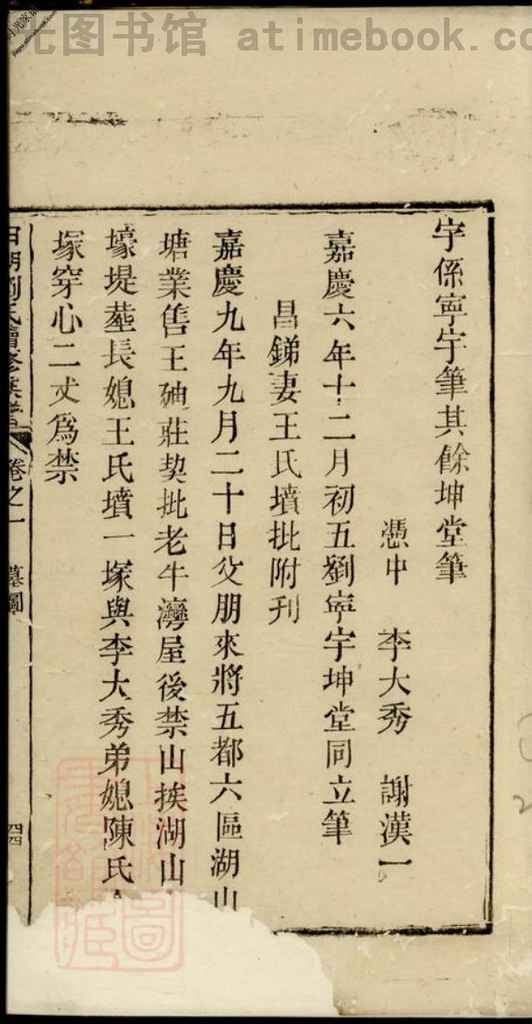 光图书馆 atimebook.com
字係寧宇筆其餘坤堂筆
憑中 李大秀 謝漢一
嘉慶六年十二月初五劉寧宇坤堂同立筆
昌銻妻王氏墳批附刊
嘉慶九年九月二十日父朋來將五都六區湖山
塘業售王廸莊契批老牛灣屋後禁山挨湖山
壕堤塟長媳王氏墳一塚與李大秀弟媳陳氏
塚穿心二丈爲禁
湖劉氏續修族譜 卷之一 墓圖 四四